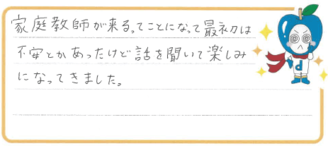 家庭教師が来る。てことになって最初は
不安とかあったけど話を聞いて楽しみ
になってきました。
d